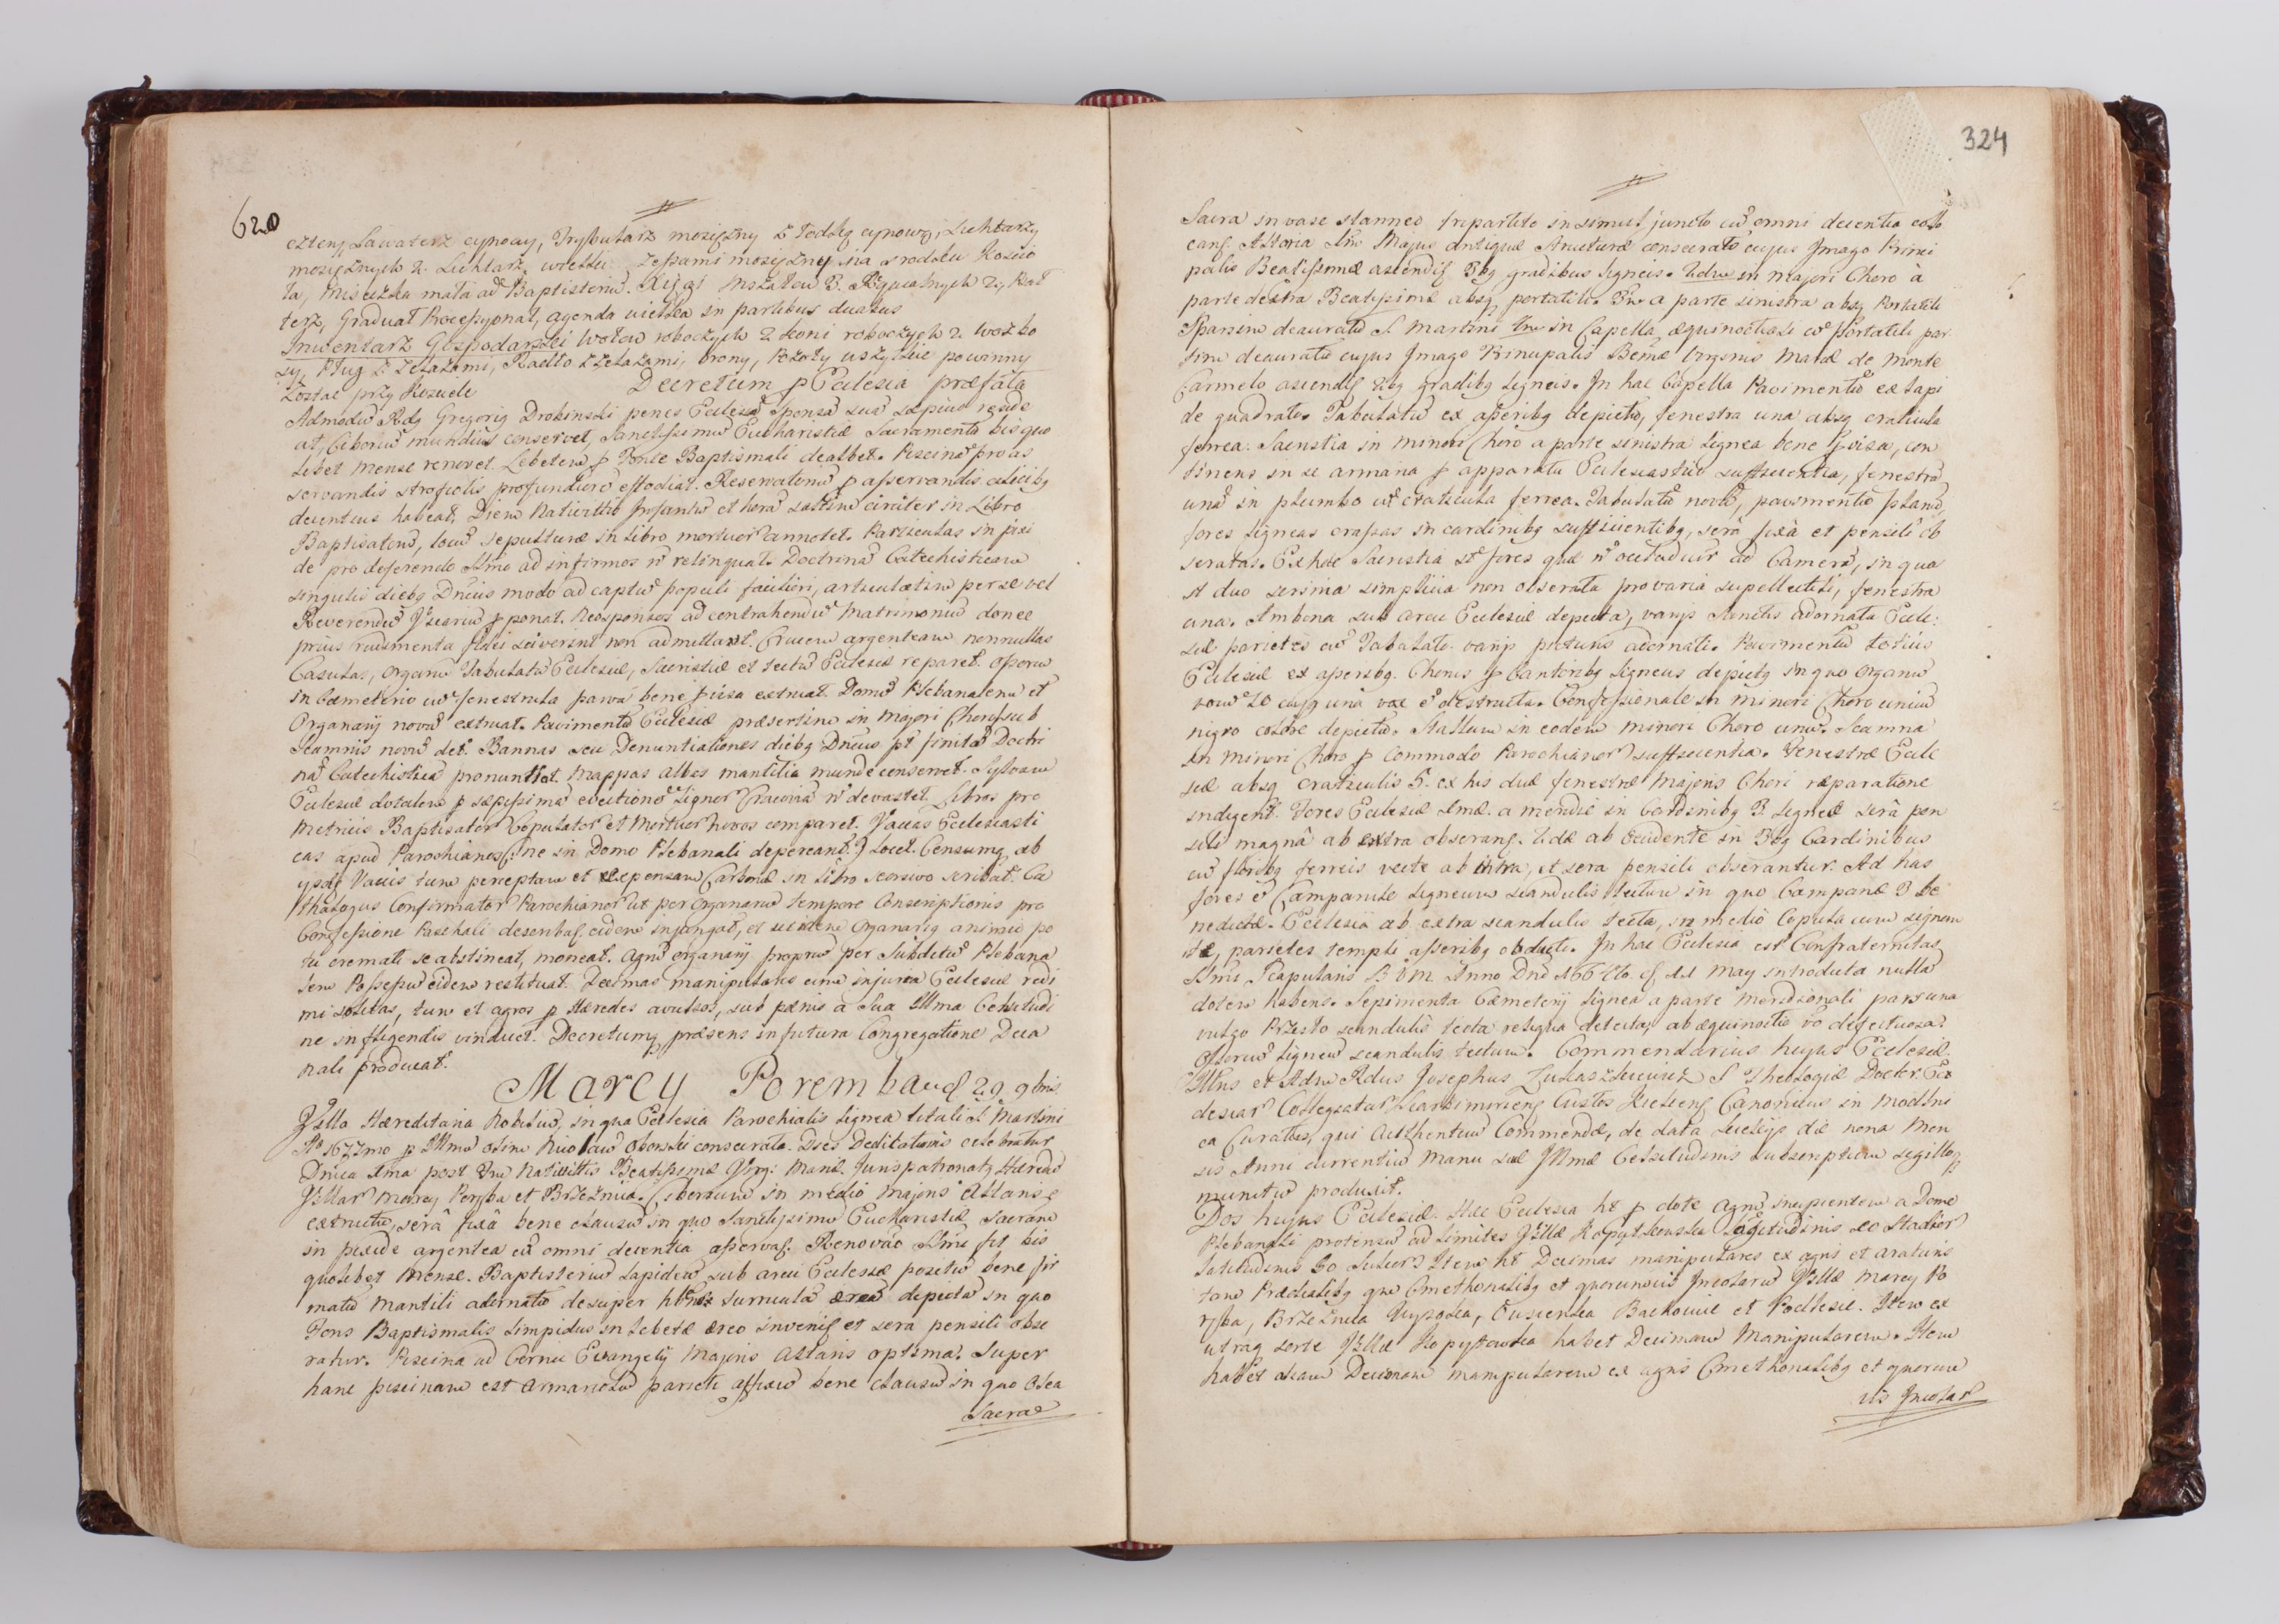 620
cztery, Lawaterz cynowy, Trybularz mosiężny z łodzką cynową, Lichtarzy
mosiężnych 2. Lichtarz wielki z lampami mosiężny na srodku Koscio
ła, Miseczka mała ad Baptisteriu. Xiąg Mszałow 3. Requialnych 2, Psał
terz, Graduał Processyonał, agenda wielka in partibus duabus
Inwentarz Gospodarski Wołow roboczych 2 koni roboczych 2. Wozko
wy, Pług z żelazami, Radło z żelazami, brony,
zostac przy Kosciele Decretum p Ecclesia præfata
Admodu Rdg Gregorig Drobinski penes Eccłesia Sponsa sua sæpius reside
at, Ciboriu mundius conservet, Sanctissimu Eucharistiæ Sacramentu bis quo
libet Mense renovet. Lebetem p Fonte Baptismali dealbet. Piscina pro as
servandis strofiolis profundiore effodiat. Reservatoriu p asservandis calicibg
decentius habeat, Diem Nativittis Infantiu et hora saltim circiter in Libro
Baptisatoru, locu sepulturæ in Libro mortuor annotet. Particulas in pixi
de pro deferendo Smo ad infirmos n relinquat. Doctrina Catechisticam
singulis diebg Dnicis modo ad captu populi faciliori, articulatim per se vel
Reverendu Vicariu p ponat. Neosponsos ad contrahendu Matrimoniu donec
prius rudimenta fidei sciverint non admittant. Crucem argenteam nonnullas
Casulas, Organu Tabulatu Ecclesiæ, Sacristiæ et tectu Ecclesiæ reparet. Ossoriu
in Cæmeterio cu fenestrula parva bene pvisa extruat. Domu Plebanalem et
Organarij nova extruat. Pavimentu Ecclesiæ præsertim in Majori Choro sub
Scamnis novu det. Bannas seu Denuntiationes diebg Dnicis pt finita Doctri
na Catechistica pronuntiat. Mappas albas mantilia munde conservet. Sylvam
Ecclesiæ dotalem p sæpissima evectione Lignor Cracovia n devastet. Libros pro
Metricis Baptisator Copulator et Mortuor novos comparet. Vaccas Ecclesiasti
cas apud Parochianos (ne in Domo Plebanali depereant) locet. Censumq ab
ysdē Vaccis tum perceptam et expensam Carbonæ in Libro seorsivo scribat. Ca
thalogus Confirmator Parochianor ut per Organariu tempore Conscriptionis pro
Confessione Paschali describat eidem injungat, et ut idem Organarig a nimio po
tu cremati se abstineat, moneat. Agru Organarij propriu per Subditu Plebana
lem Possessu eidem restituat. Decimas manipulares cum injuria Ecclesiæ redi
mi solitas, tum et agros p Hæredes avulsos, sub pœnis a Sua Illma Celsitudi
ne infligendis vindicet. Decretumq præsens in futura Congregatione Deca
nali producat.
Marcy Poremba 29. 9bris
Villa Hæreditaria Nobiliu, in qua Ecclesia Parochialis lignea tituli S. Martini
Ao 1677mo p Illmu olim Nicolau Oborski consecrata. Dies Dedicationis celebratur
Dnica 1ma post fm Nativittis Beatissimæ Virg: Mariæ. Juris patronatg Hæredu
Villar Marcy Poręba et Brzeźnica. Ciboriu in medio Majoris Altaris
extructu, sera fixa bene clausu in quo Sanctissimu Eucharistiæ Sacram
in pixide argentea cu omni decentia asservat. Renovāo Smi fit bis
quolibet Mense. Baptisteriu lapideu sub arcu Ecclesiæ positu bene fir
matu Mantili adornatu desuper depicta in quo
Fons Baptismalis limpidus in lebete æreo invenit et sera pensili obse
ratur. Piscina ad Cornu Evangelij Majoris Altaris optima. Super
hanc piscinam est armariolu parieti affixu bene clausu in quo Olea
Sacra
324
Sacra in vase stanneo tripartito insimul juncto cu omni decentia collo
cant. Altaria 1mo Majus antiquæ structuræ consecratu cujus Imago Princi
palis Beatissimæ ascendit 3bg gradibus ligneis. 2dum in majori Choro a
parte dextra Beatissimæ absq portatili. 3um a parte sinistra absq Portatili
Sparsim deauratu S Martini 4um in Capella æquinoctiali cu portatili par
tim deauratu cujus Imago Principalis Bemæ Virginis Mariæ de Monte
Carmelo ascendit 2bg gradibg ligneis. In hac Capella Pavimentu ex lapi
de quadrato. Tabulatu ex asseribg depictis, fenestra una absq craticula
ferrea. Sacristia in minori Choro a parte sinistra lignea bene pvisa, con
tinens in se armaria p apparatu Ecclesiastico sufficientia, fenestra
una in plumbo cu craticula ferrea. Tabulatu novu, pavimentu planu,
fores ligneas crassas in cardinibg sufficientibg, sera fixa et pensili ob
seratas. Ex hac Sacristia st fores quæ n occluduir ad Camera, in qua
st duo scrinia simplicia non obserata pro varia supellectili, fenestra
una. Ambona sub arcu Ecclesiæ depicta, varijs Sanctis adornata Eccle:
siæ parietes cu Tabulato varijs picturis adornati. Pavimentu totius
Ecclesiæ ex asseribg. Chorus p Cantoribg ligneus depictg in quo Organu
vocu 10 cujg una vox e destructa. Confessionale in minori Choro unicu
nigro colore depictu. Stallum in eodem minori Choro unu. Scamna
in minori Choro p Commodo Parochianor sufficientia. Fenestræ Eccle
siæ absq craticulis 5. ex his duæ fenestræ Majoris Chori reparatione
indigent. Fores Ecclesiæ 1mæ. a meridie in Cardinibg 3. ligneæ sera pen
sili magna ab extra obserant. 2dæ ab Occidente in 3bg Cardinibus
cu floribg ferreis vecte ab intra, et sera pensili obserantur. Ad has
fores e Campanile ligneum scandulis tectum in quo Campanæ 3 be
nedictæ. Ecclesia ab extra scandulis tecta, in medio Copula cum signom
, parietes templi asseribg obducti. In hac Ecclesia est Confraternitas
Smi Scapularis BVM. Anno Dni May introducta nulla
dotem habens. Sepimenta Cæmeterij lignea a parte meridionali pars una
vulgo Przęsło scandulis tecta reliqua detecta, ab æquinoctio vo defectuosa.
Ossoriu ligneu scandulis tectum. Commendarius hujus Ecclesiæ
Illris et Adm Rdus Josephus S Theologiæ Doctor
clesiar Collegiatar Custos Canonicus in
ca Curatus, qui Authenticu Commendæ, de data die nona Men
sis Anni currentis Manu suæ Illmæ Celsitudinis subscriptum sigilloq
munitu produxit.
Dos hujus Ecclesiæ. Hæc Ecclesia ht p dote Agru incipientem a Domo
Plebanali protensu ad limites Villæ Kopytkowka Longitudinis 20 Stadior
latitudinis 60 Sulcor Item ht Decimas manipulares ex agris et araturis
tam Prædialibg qua Cmethonalibg et quorumvis Incolaru Villæ Marcy Po
ręba, Brzeźnica Wysoka, Bachowice et Podlesie. Item ex
utraq sorte Villæ Kopytowka habet Decimam Manipularem. Item
habet etiam Decimam manipularem ex agris Cmethonalibg et quorum
vis Incolar